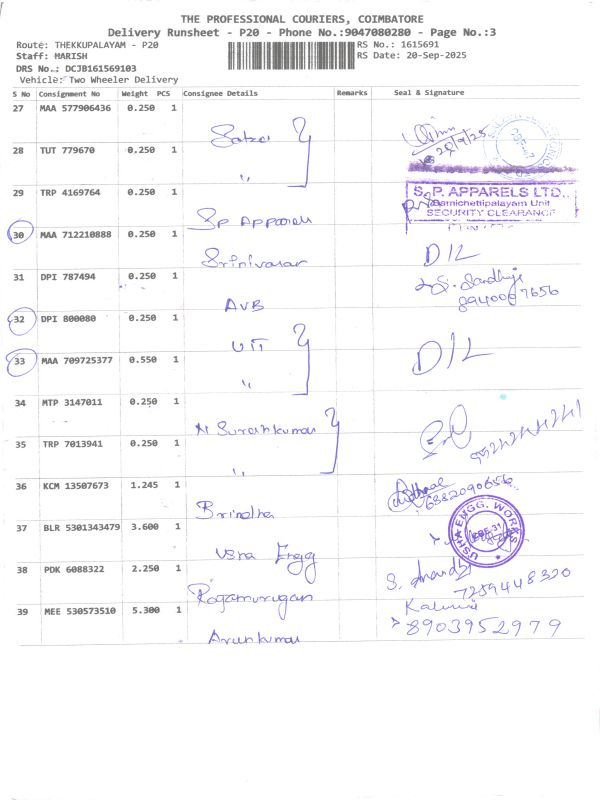 THE PROFESSIONAL COURIERS, COIMBATORE
Delivery Runsheet - P20 - Phone No.:9047080280 - Page No.:3
Route: THEKKUPALAYAM - P20 RS No.: 1615691
Staff: MARISH RS Date: 20-Sep-2025
DRS No.: DCJB161569103
Vehicle: Two Wheeler Delivery
S No Consignment No Weight PCS Consignee Details Remarks Seal & Signature
27 MAA 577906436 0.250 1
28 TUT 779670 0.250 1 "
29 TRP 4169764 0.250 1
S.P. APPARELS LTD.,
SECURITY CLEARANCE
SP Apparels
30 MAA 712210888 0.250 1
Srinivasan D/L
31 DPI 787494 0.250 1
AVB
32 DPI 800080 0.250 1
UTI
33 MAA 709725377 0.550 1 D/L
"
34 MTP 3147011 0.250 1
Sureshkumar
35 TRP 7013941 0.250 1
"
36 KCM 13507673 1.245 1
Brindha 6382090656
37 BLR 5301343479 3.600 1
USHA ENGG. WORKS
CBE-31
Usha Engg
38 PDK 6088322 2.250 1 S. Anandh
Ragamurugan 7259448320
39 MEE 530573510 5.300 1
Arunkumar 8903952979